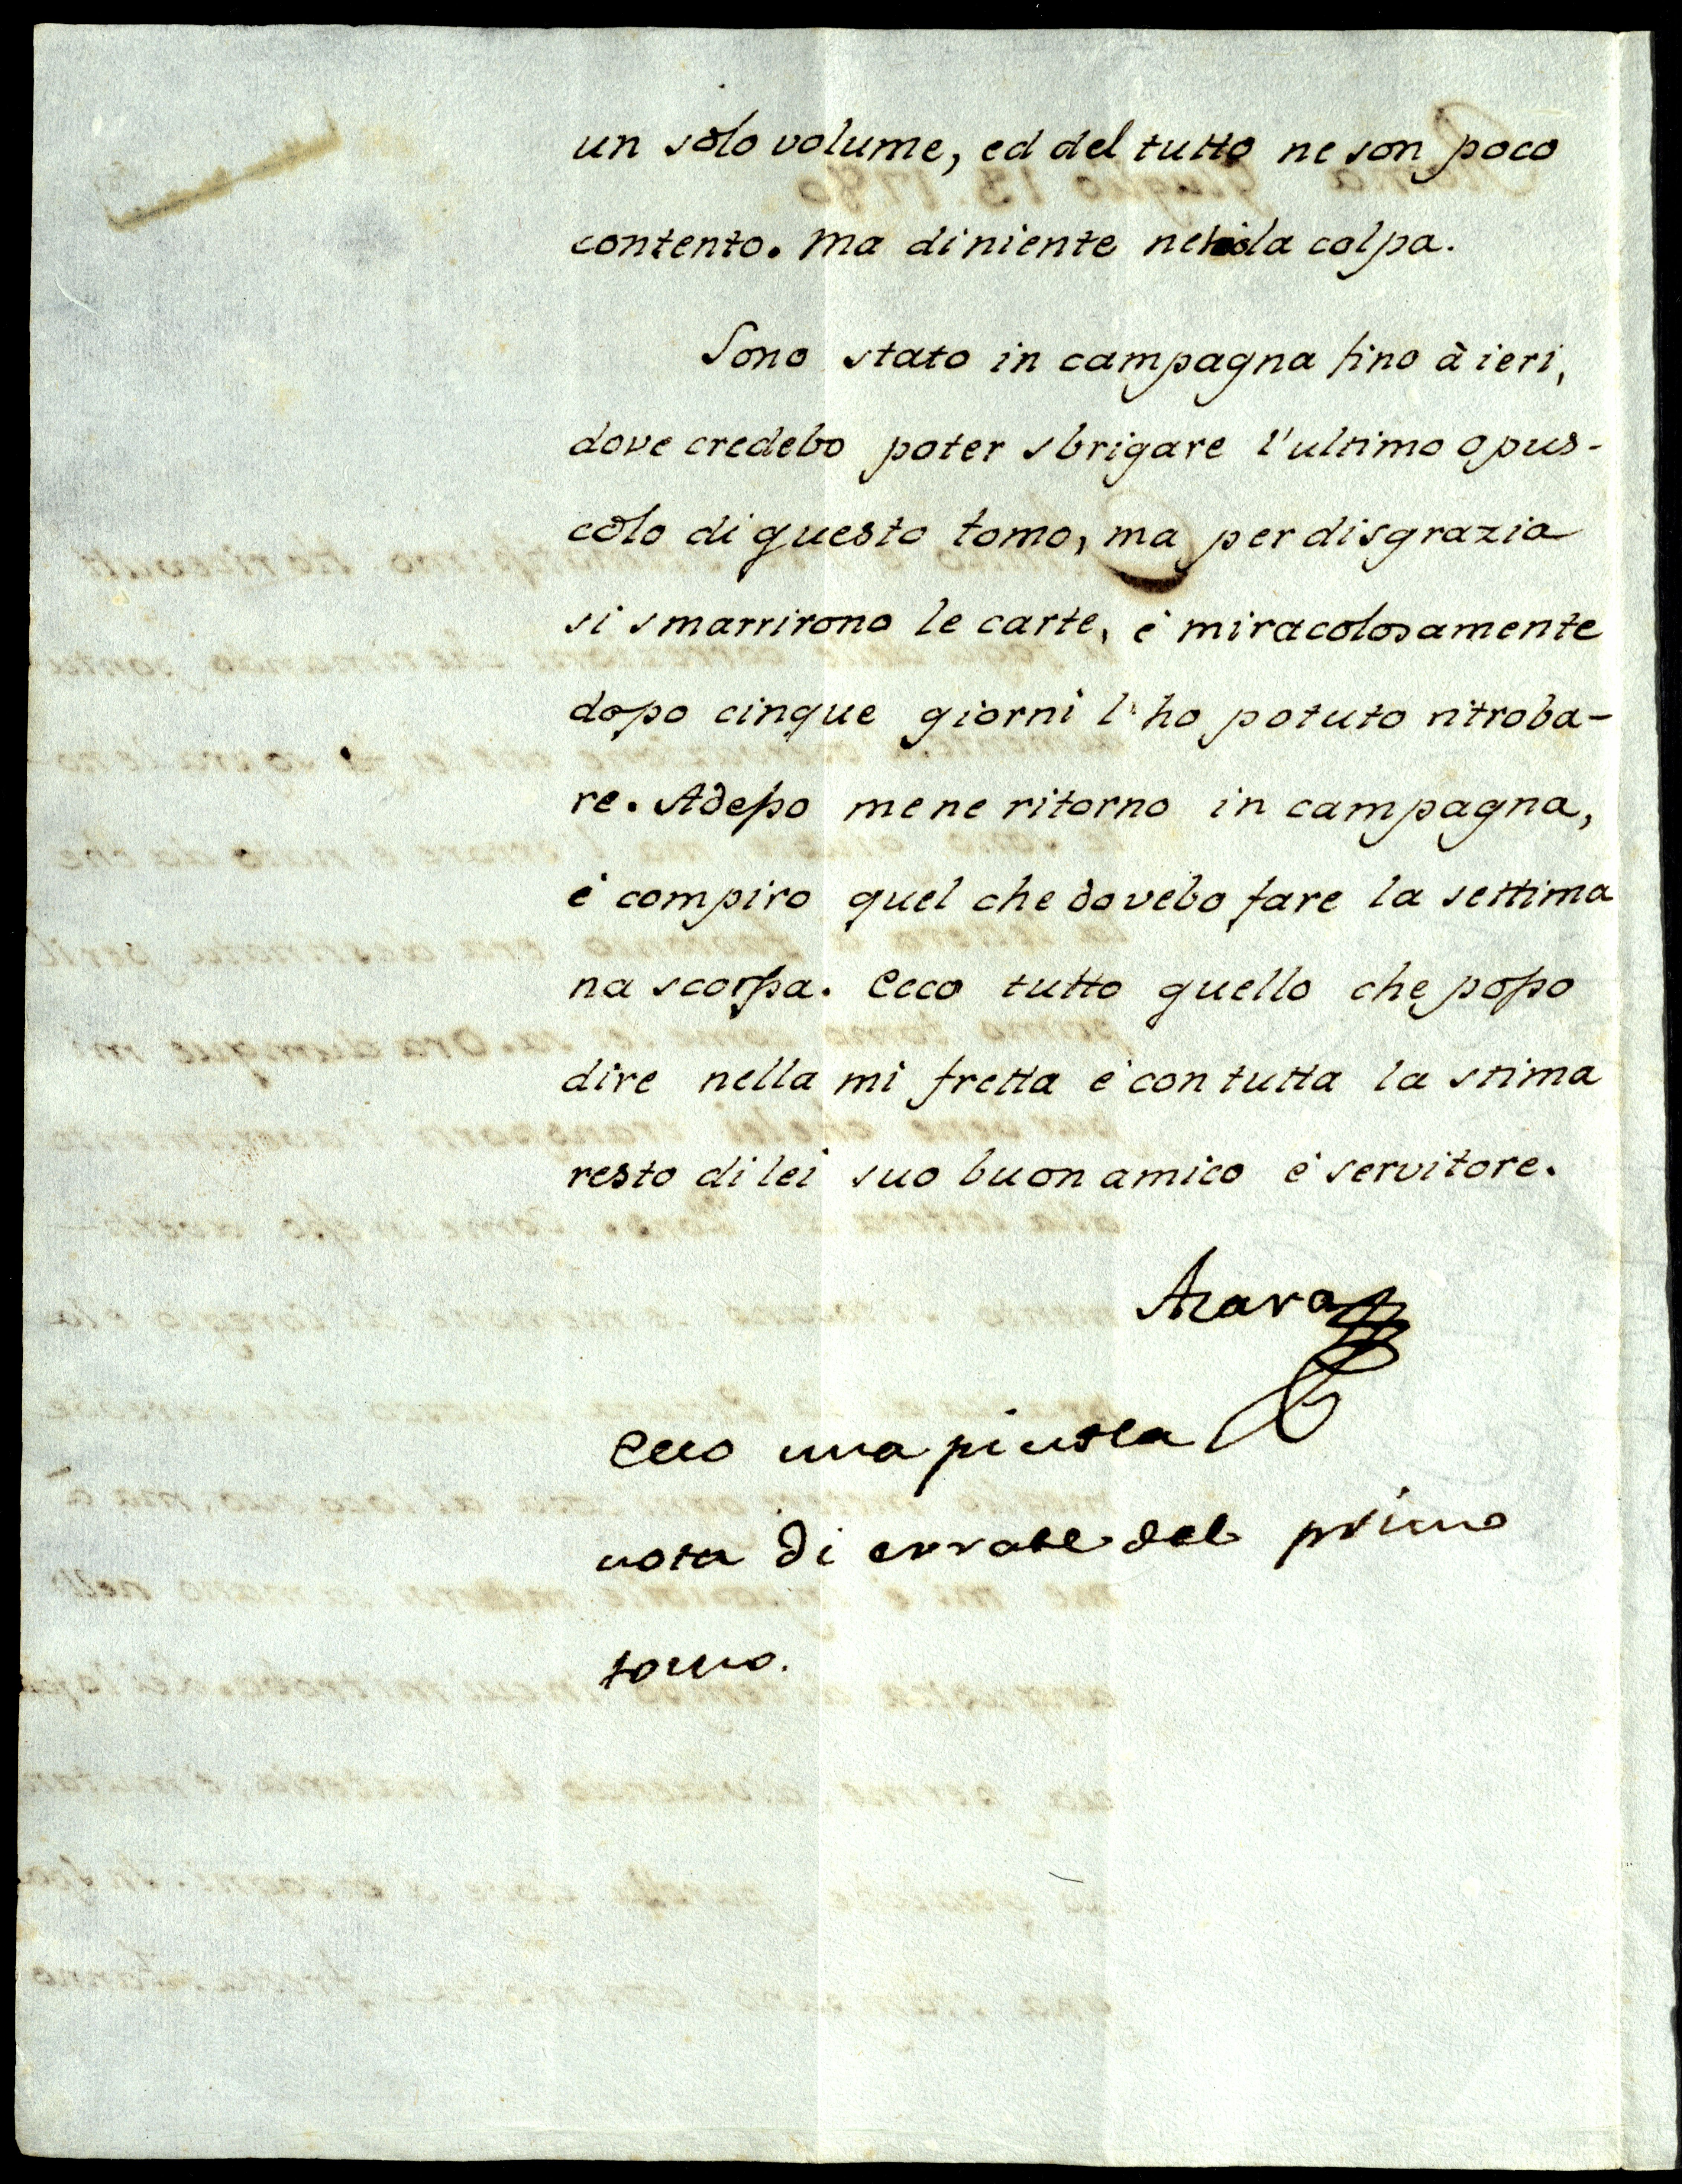 un solo volume, ed del tutto ne son poco
contento. Ma di niente ne la colpa.
Sono stato in campagna fino à ieri,
dove credebo poter sbrigare l'ultimo opus-
colo di questo tomo, ma per disgrazia
si smarrirono le carte, è miracolosamente
dopo cinque giorni l'ho potuto ritroba-
re. Adesso mene ritorno in campagna,
è compiro quel che dovebo fare la settima
na scorssa. Ecco tutto quello che posso
dire nella mi fretta è con tutta la stima
resto di lei suo buon amico è servitore.
Azara
Ecco una picola
nota di errate del primo
tomo.